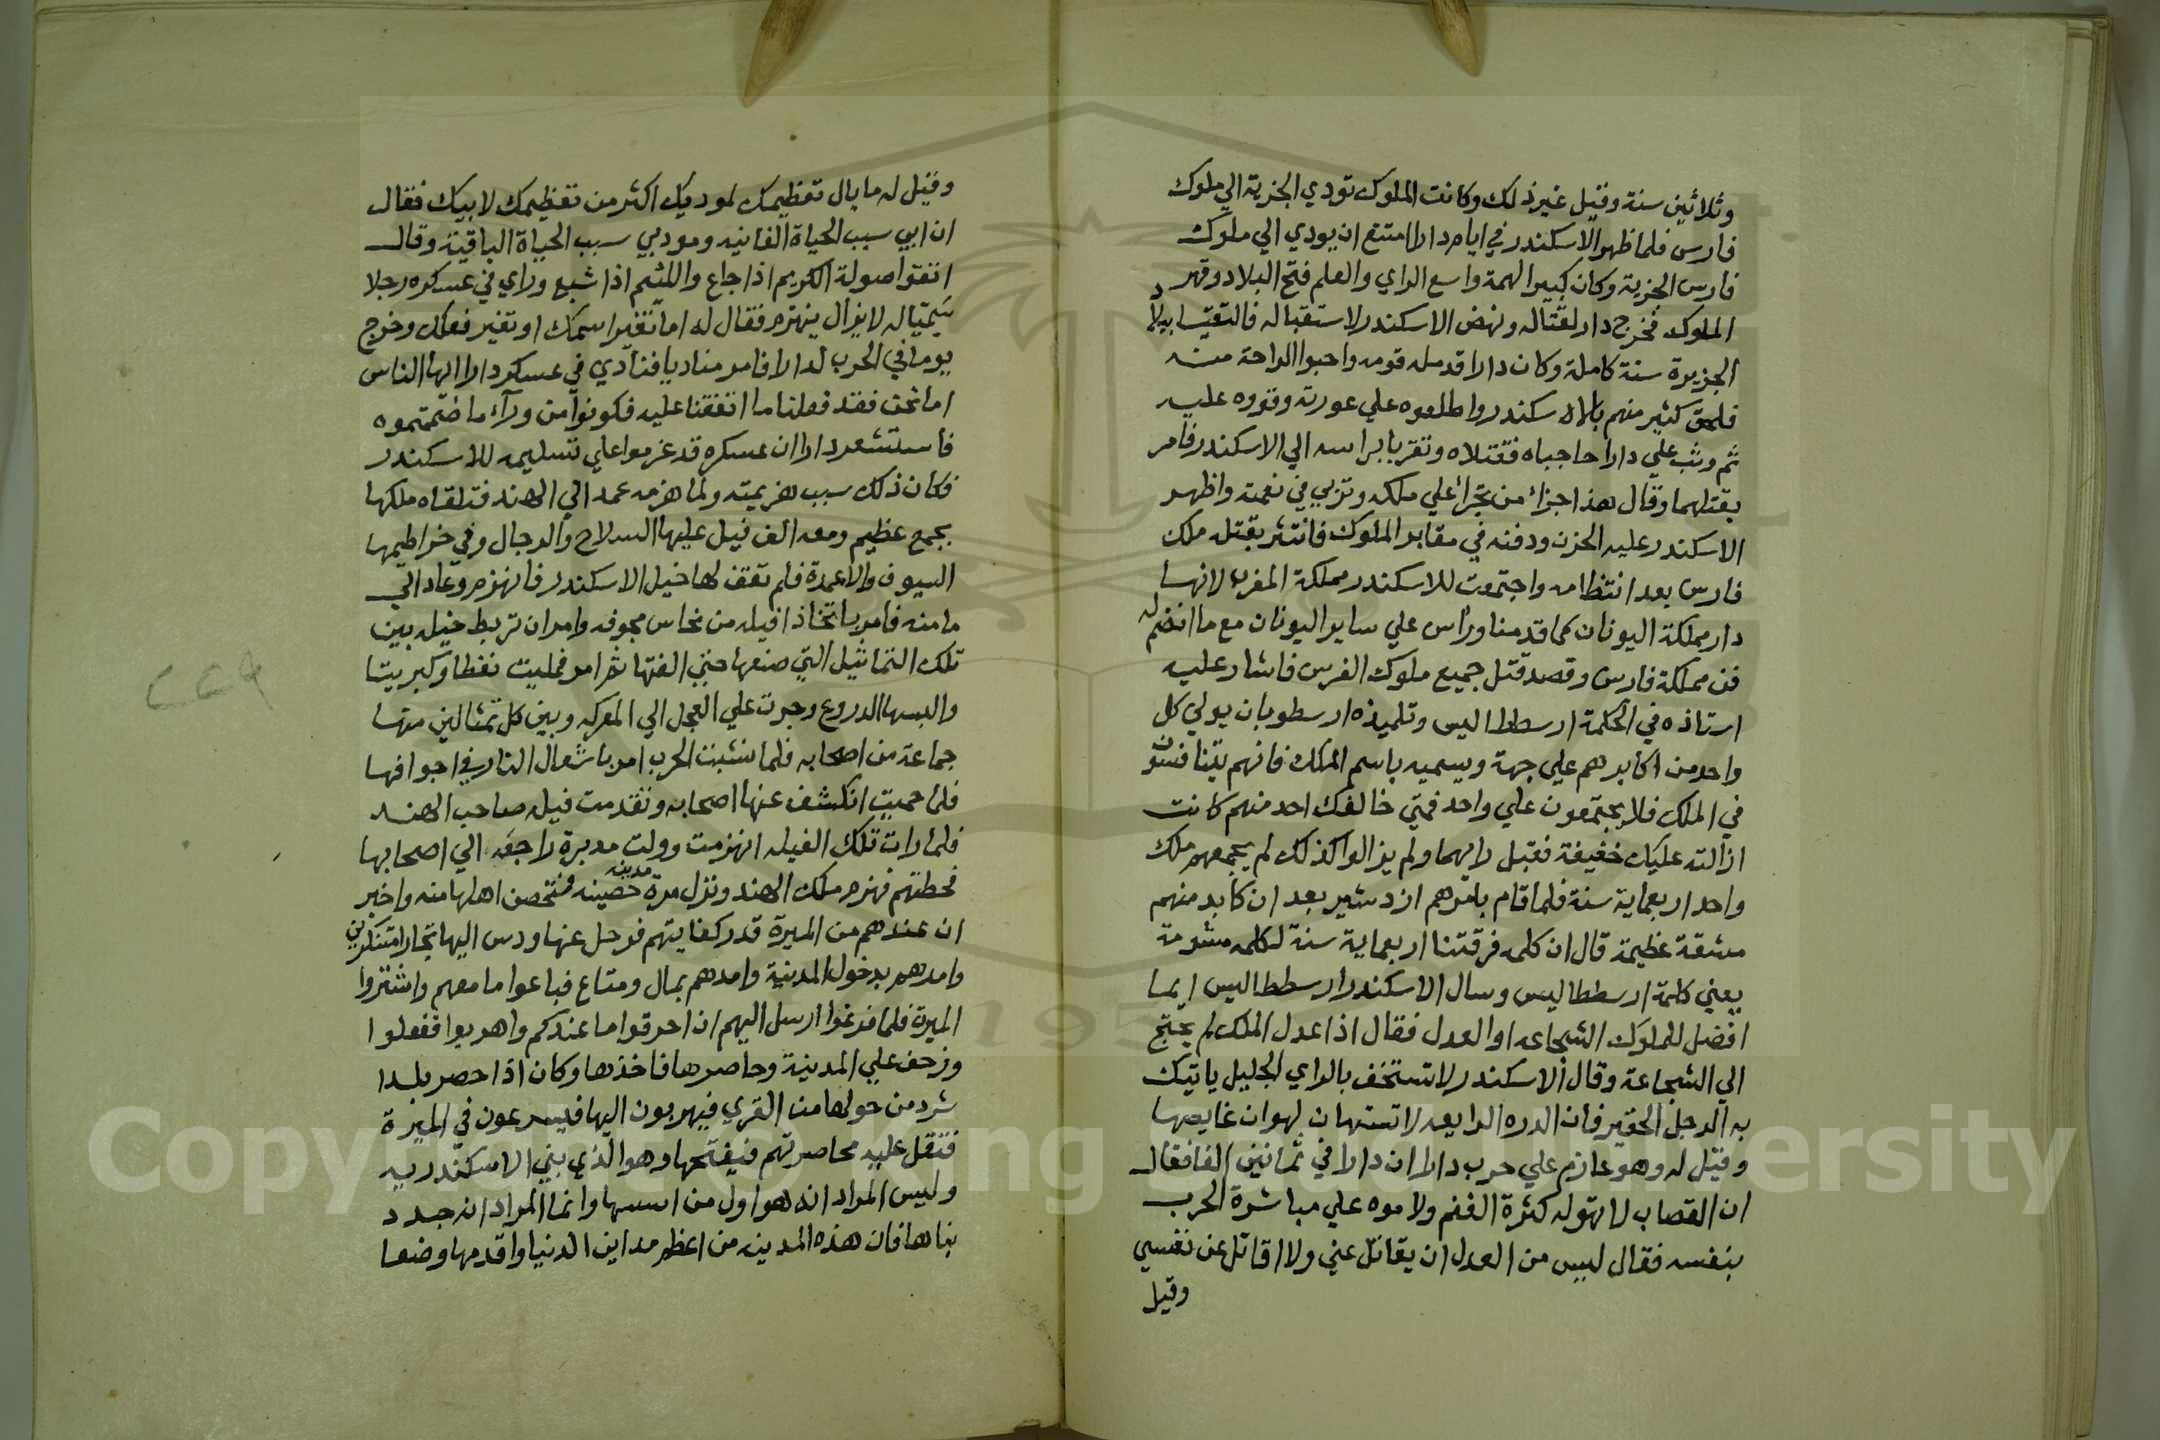 وثلاثين سنة وقيل غير ذلك وكانت الملوك تودي الجزية الي ملوك
فارس فلما ظهر الاسكندر في ايام دارا امتنع ان يودي الي ملوك
فارس الجزية وكان كبير الهمة واسع الراي والعلم فتح البلاد وقهر
الملوك فخرج دار لقتاله ونهض الاسكندر لاستقباله فالتقيا ببلاد
الجزيرة سنة كاملة وكان دارا قد مله قومه واحبوا الراحة منه
فلحق كثير منهم بالاسكندر واطلعوه علي عورته وقووه عليه
ثم وثب علي دارا حاجباه فقتلاه وتقربا براسه الي الاسكندر فامر
بقتلهما وقال هذا جزاء من تجرا علي ملكه وتربي في نعمته واظهر
الاسكندر عليه الحزن ودفنه في مقابر الملوك فانتثر بقتله ملك
فارس بعد انتظامه واجتمعت للاسكندر مملكة المغرب لانها
دار مملكة اليونان كما قدمنا وراس علي ساير اليونان مع ما انضم له
من مملكة فارس وقصد قتل جميع ملوك الفرس فاشار عليه
استاذه في الحكمة ارسططاليس وتلميذه ارسطو بان يولي كل
واحد من اكابرهم علي جهة ويسميه باسم الملك فانهم يتنافسون
في الملك فلا يجتمعون علي واحد فمتي خالفك احد منهم كانت
ازالته عليك خفيفة فقبل رايهما ولم يزالوا كذلك لم يجمعهم ملك
واحد اربعماية سنة فلما قام بامرهم ازدشير بعد ان كابد منهم
مشقة عظيمة قال ان كلمه فرقتنا اربعماية سنة لكلمه مشومة
يعني كلمة ارسططاليس وسال الاسكندر ارسططاليس ايما
افضل للملوك الشجاعه او العدل فقال اذا عدل الملك لم يحتج
الي الشجاعة وقال الاسكندر لا تستخف بالراي الجليل ياتيك
به الرجل الحقير فان الدره الرايعه لا تستهان لهوان غايصها
وقيل له وهو عازم علي حرب دارا ان دارا في ثمانين الفا فقال
ان القصاب لا تهوله كثرة الغنم ولاموه علي مباشرة الحرب
بنفسه فقال ليس من العدل ان يقاتل عني ولا اقاتل عن نفسي
وقيل
وقيل له ما بال تعظيمك لموديك اكثر من تعظيمك لابيك فقال
ان ابي سبب الحياة الفانيه ومودبي سبب الحياة الباقية وقال
اتقوا صولة الكريم اذا جاع واللئيم اذا شبع وراي في عسكره رجلا
سميا له لا يزال ينهزم فقال له اما تغير اسمك او تغير فعلك وخرج
يوما في الحرب لدارا فامر مناديا فنادي في عسكر دارا ايها الناس
اما نحن فقد فعلنا ما اتفقنا عليه فكونوا من ورآء ما ضمنتموه
فاستشعر دارا ان عسكره قد عزموا علي تسليمه للاسكندر
فكان ذلك سبب هزيمته ولما هزمه عمد الي الهند فتلقاه ملكها
بجمع عظيم ومعه الف فيل عليها السلاح والرجال وفي خراطيمها
السيوف والاعمدة فلم تقف لها خيل الاسكندر فانهزم وعاد الي
مامنه فامر باتخاذ افيله من نحاس مجوفه وامر ان تربط خيله بين
تلك التماثيل التي صنعها حتي الفتها ثم امر فمليت نفطا وكبريتا
والبسها الدروع وجرت علي العجل الي المعركه وبين كل تمثالين منها
جماعة من اصحابه فلما نشبت الحرب امر باشعال النار في اجوافها
فلما حميت انكشف عنها اصحابه وتقدمت فيله صاحب الهند
فلما رات تلك الفيله انهزمت وولت مدبرة راجعه الي اصحابها
فحطتهم فهزم ملك الهند ونزل مرة مدينه حصينه فتحصن اهلها منه واخبر
ان عندهم من الميرة قدر كفايتهم فرحل عنها ودس اليها تجارا متنكرين
وامرهم بدخول المدينة وامدهم بمال ومتاع فباعوا ما معهم واشتروا
الميرة فلما فرغوا ارسل اليهم ان احرقوا ما عندكم واهربوا ففعلوا
وزحف علي المدينة وحاصرها فاخذها وكان اذا حصر بلدا
شرد من حولها من القري فيهربون اليها فيسرعون في الميرة
فتقل عليه محاصرتهم فيفتحها وهو الذي بني الاسكندريه
وليس المراد انه هو اول من اسسها وانما المراد انه جدد
بناها فان هذه المدينه من اعظم مداين الدنيا واقدمها وضعا
Copyright © King Saud University